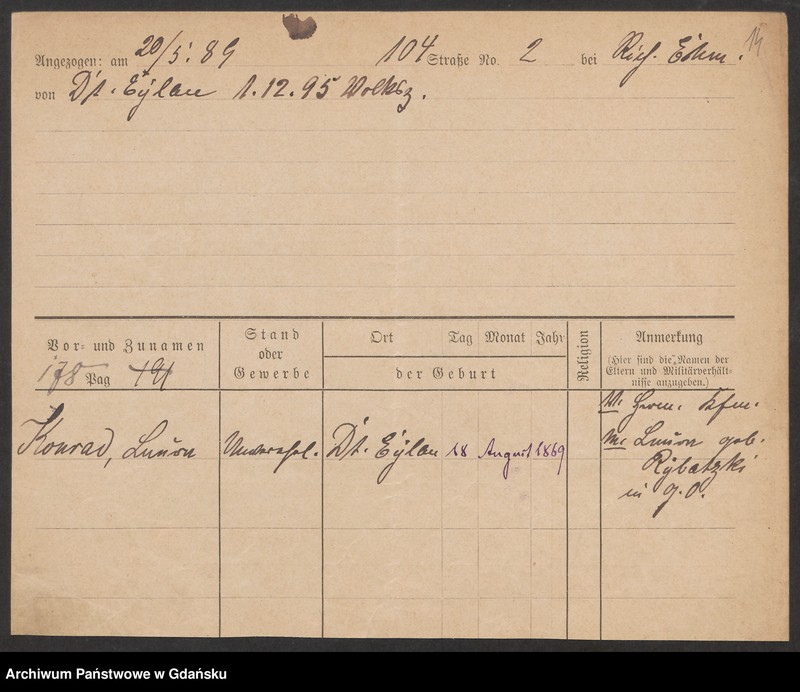 14
Angezogen: am 20/5. 89 104 Straße No. 2 bei Rich. Böhm.
von Dt. Eylau 1.12.95
Vor- und Zunamen Stand oder Gewerbe Ort Tag Monat Jahr der Geburt Religion Anmerkung
(Hier sind die Namen der
Eltern und Militärverhält-
nisse anzugeben.)
178 Pag
Konrad, Laura Dt. Eylau 18 August 1869
V. Herm. Kfm.
M. Laura geb.
Rybatzki
in g. O.
Archiwum Państwowe w Gdańsku